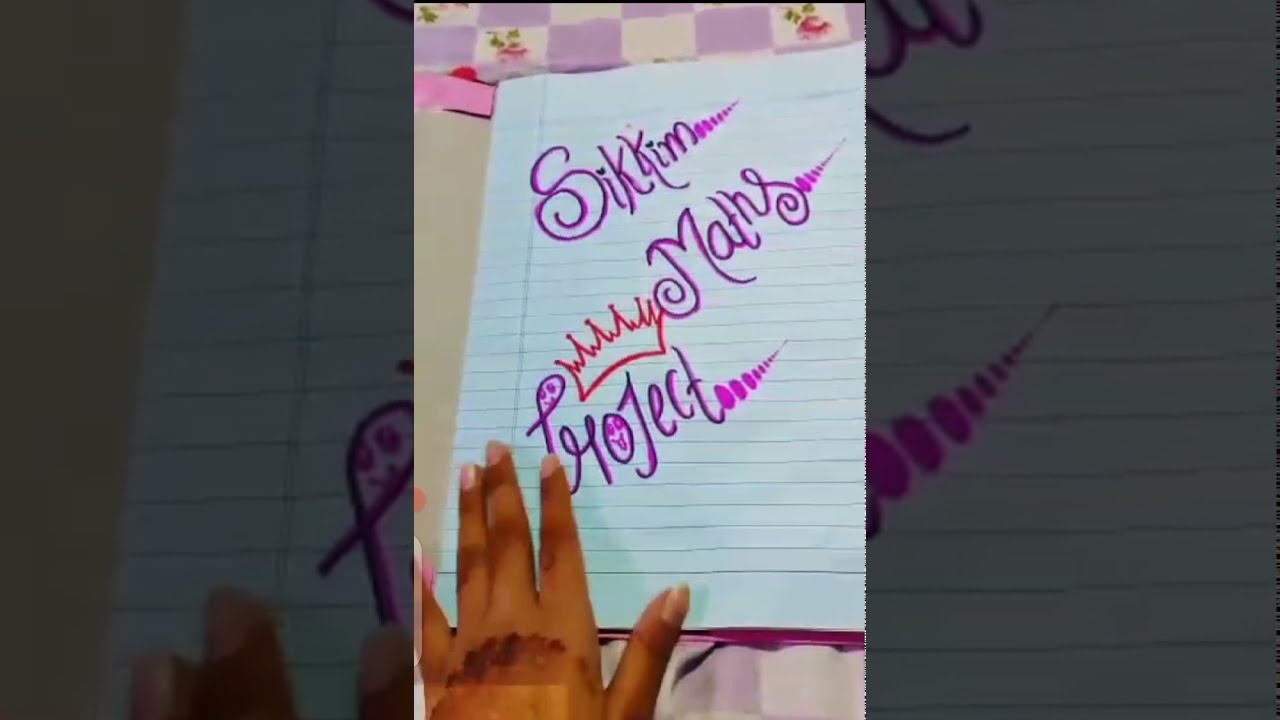 Sikkim
Maths
ProJect